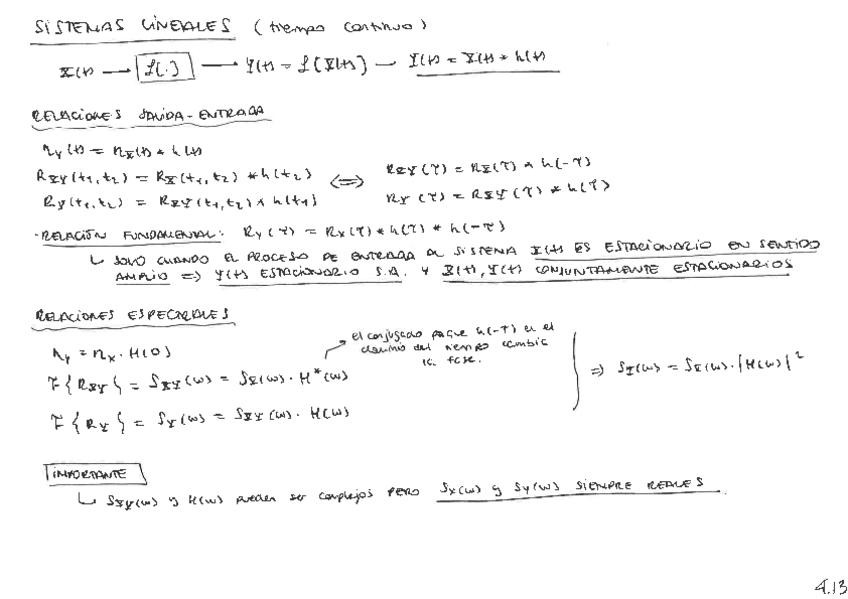 SISTEMAS LINEALES (tiempo continuo)
X(t) → L(·) → Y(t) = L{X(t)} → Y(t) = X(t) * h(t)
RELACIONES SALIDA-ENTRADA
η_Y(t) = η_X(t) * h(t)
R_XY(t₁,t₂) = R_X(t₁,t₂) * h(t₂) ⇔ R_XY(τ) = R_X(τ) * h(-τ)
R_Y(t₁,t₂) = R_XY(t₁,t₂) * h(t₁) R_Y(τ) = R_XY(τ) * h(τ)
· RELACIÓN FUNDAMENTAL: R_Y(τ) = R_X(τ) * h(τ) * h(-τ)
↳ SOLO CUANDO EL PROCESO DE ENTRADA AL SISTEMA X(t) ES ESTACIONARIO EN SENTIDO
AMPLIO ⇒ Y(t) ESTACIONARIO S.A. Y X(t), Y(t) CONJUNTAMENTE ESTACIONARIOS
RELACIONES ESPECTRALES
η_Y = η_X · H(0)
el conjugado porque h(-τ) en el
dominio del tiempo cambia
la fase.
F{R_XY} = S_XY(ω) = S_X(ω) · H*(ω)
⇒ S_Y(ω) = S_X(ω) · |H(ω)|²
F{R_Y} = S_Y(ω) = S_XY(ω) · H(ω)
IMPORTANTE
↳ S_XY(ω) y H(ω) pueden ser complejos PERO S_X(ω) y S_Y(ω) SIEMPRE REALES.
4.13